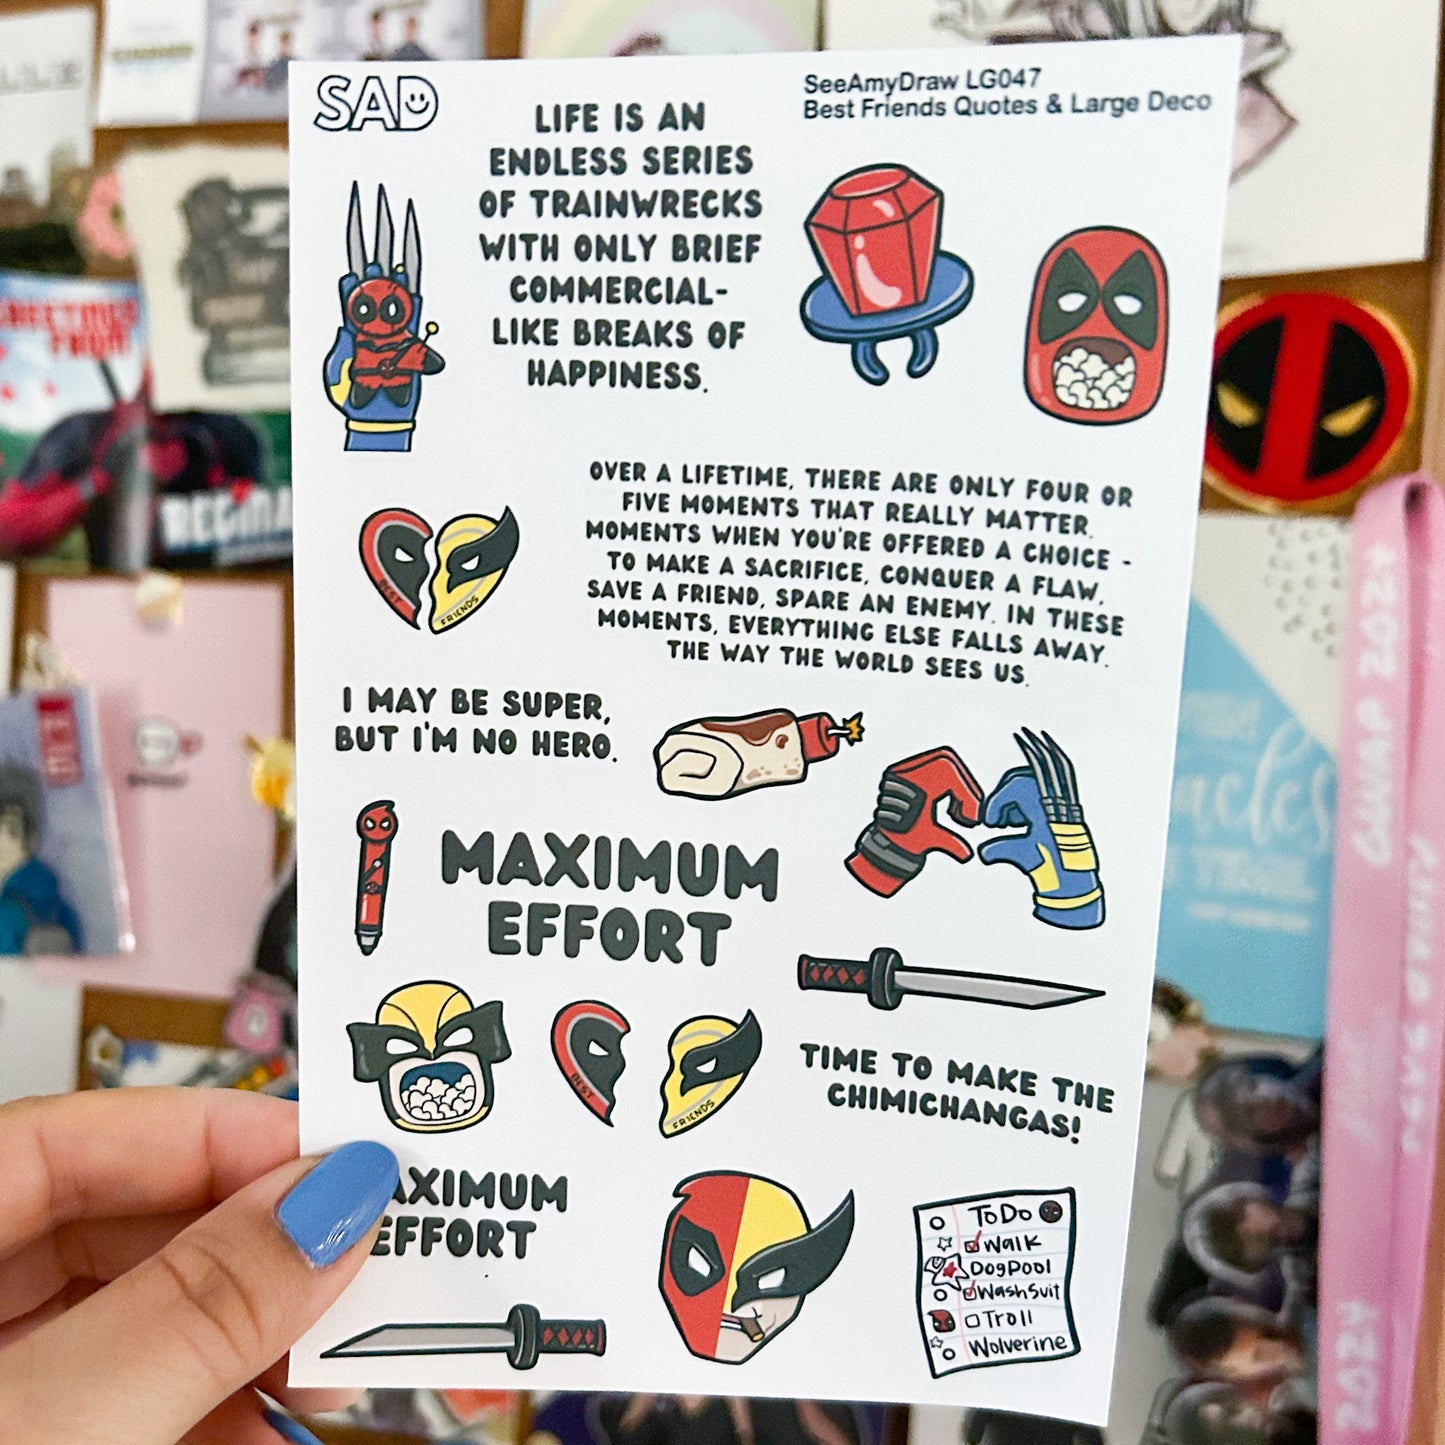 SAD
SeeAmyDraw LG047
Best Friends Quotes & Large Deco
LIFE IS AN
ENDLESS SERIES
OF TRAINWRECKS
WITH ONLY BRIEF
COMMERCIAL-
LIKE BREAKS OF
HAPPINESS.
OVER A LIFETIME, THERE ARE ONLY FOUR OR
FIVE MOMENTS THAT REALLY MATTER.
MOMENTS WHEN YOU'RE OFFERED A CHOICE -
TO MAKE A SACRIFICE, CONQUER A FLAW,
SAVE A FRIEND, SPARE AN ENEMY. IN THESE
MOMENTS, EVERYTHING ELSE FALLS AWAY.
THE WAY THE WORLD SEES US.
BEST
FRIENDS
I MAY BE SUPER,
BUT I'M NO HERO.
MAXIMUM
EFFORT
BEST
FRIENDS
TIME TO MAKE THE
CHIMICHANGAS!
AXIMUM
EFFORT
ToDo
Walk
DogPool
WashSuit
Troll
Wolverine
2024